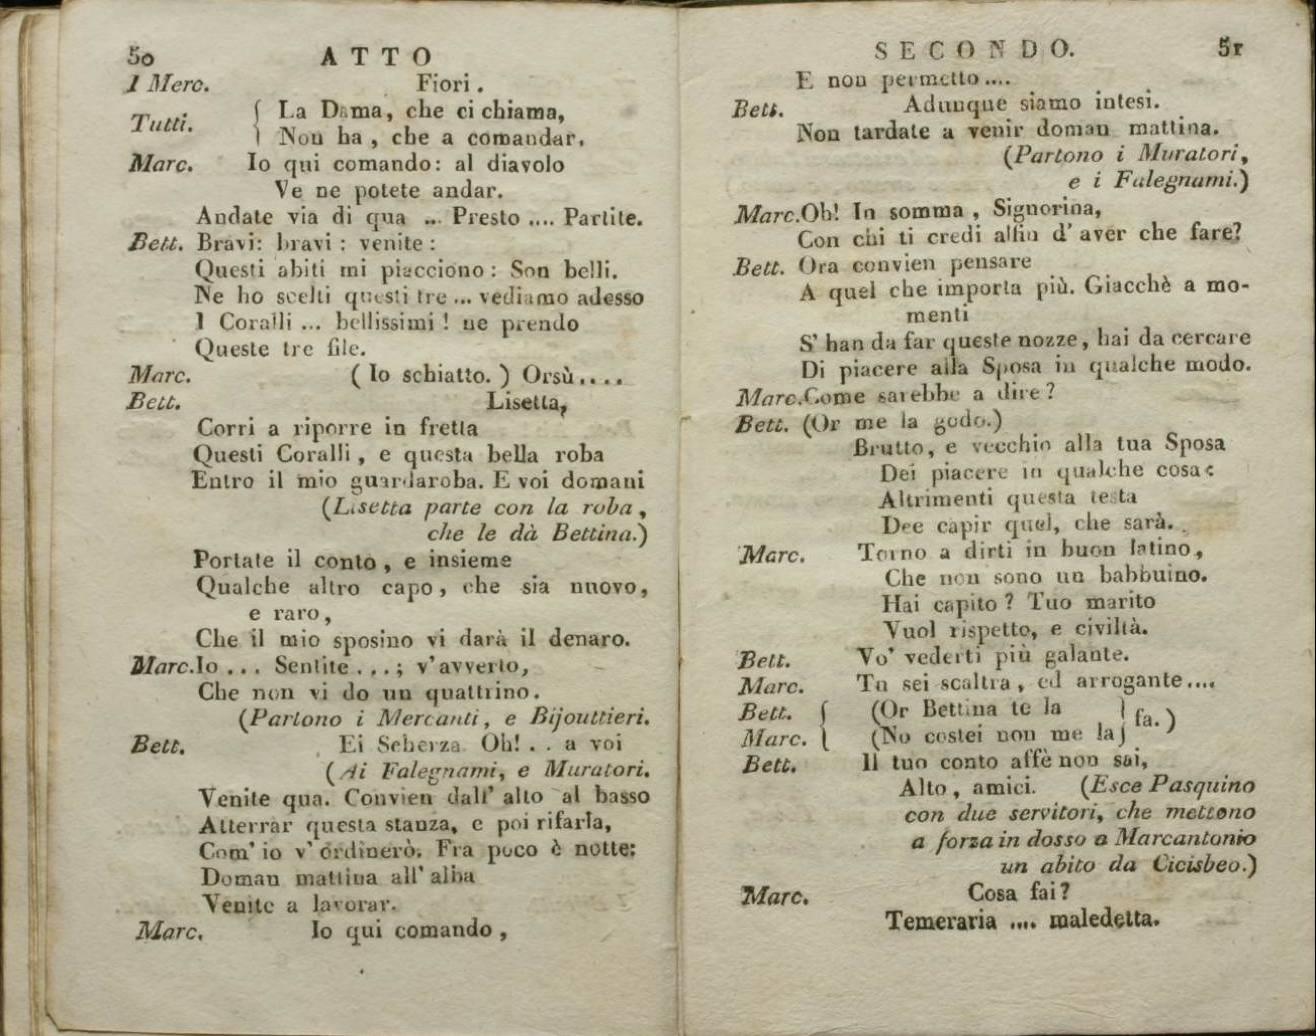 50 ATTO
1 Merc. Fiori.
Tutti. { La Dama, che ci chiama,
Non ha, che a comandar.
Marc. Io qui comando: al diavolo
Ve ne potete andar.
Andate via di qua ... Presto .... Partite.
Bett. Bravi: bravi: venite:
Questi abiti mi piacciono: Son belli.
Ne ho scelti questi tre ... vediamo adesso
I Coralli ... bellissimi! ne prendo
Queste tre file.
Marc. (Io schiatto.) Orsù....
Bett. Lisetta,
Corri a riporre in fretta
Questi Coralli, e questa bella roba
Entro il mio guardaroba. E voi domani
(Lisetta parte con la roba,
che le dà Bettina.)
Portate il conto, e insieme
Qualche altro capo, che sia nuovo,
e raro,
Che il mio sposino vi darà il denaro.
Marc. Io ... Sentite ...; v'avverto,
Che non vi do un quattrino.
(Partono i Mercanti, e Bijouttieri.
Bett. Ei Scherza. Oh! .. a voi
(Ai Falegnami, e Muratori.
Venite qua. Convien dall' alto al basso
Atterrar questa stanza, e poi rifarla,
Com' io v' ordinerò. Fra poco è notte:
Doman mattina all' alba
Venite a lavorar.
Marc. Io qui comando,
SECONDO. 51
E non permetto....
Bett. Adunque siamo intesi.
Non tardate a venir doman mattina.
(Partono i Muratori,
e i Falegnami.)
Marc. Oh! In somma, Signorina,
Con chi ti credi alfin d'aver che fare?
Bett. Ora convien pensare
A quel che importa più. Giacchè a mo-
menti
S' han da far queste nozze, hai da cercare
Di piacere alla Sposa in qualche modo.
Marc. Come sarebbe a dire?
Bett. (Or me la godo.)
Brutto, e vecchio alla tua Sposa
Dei piacere in qualche cosa:
Altrimenti questa testa
Dee capir quel, che sarà.
Marc. Torno a dirti in buon latino,
Che non sono un babbuino.
Hai capito? Tuo marito
Vuol rispetto, e civiltà.
Bett. Vo' vederti più galante.
Marc. Tu sei scaltra, ed arrogante....
Bett. { (Or Bettina te la } fa.)
Marc. { (No costei non me la }
Bett. Il tuo conto affè non sai,
Alto, amici. (Esce Pasquino
con due servitori, che mettono
a forza in dosso a Marcantonio
un abito da Cicisbeo.)
Marc. Cosa fai?
Temeraria .... maledetta.